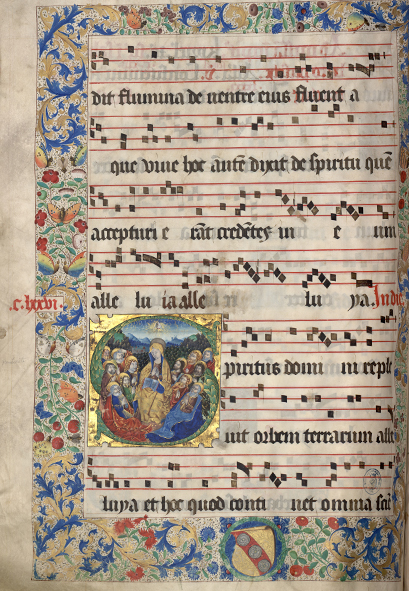 dit flumina de ventre eius fluent a
que vive hoc autē dixit de spiritu quē
accepturi e rāt credētes in e um
alle lu ia alle lu ya. In die
c. lxxvi.
Spiritus domi ni reple
uit orbem terrarum alle
luya et hoc quod conti net omnia sci